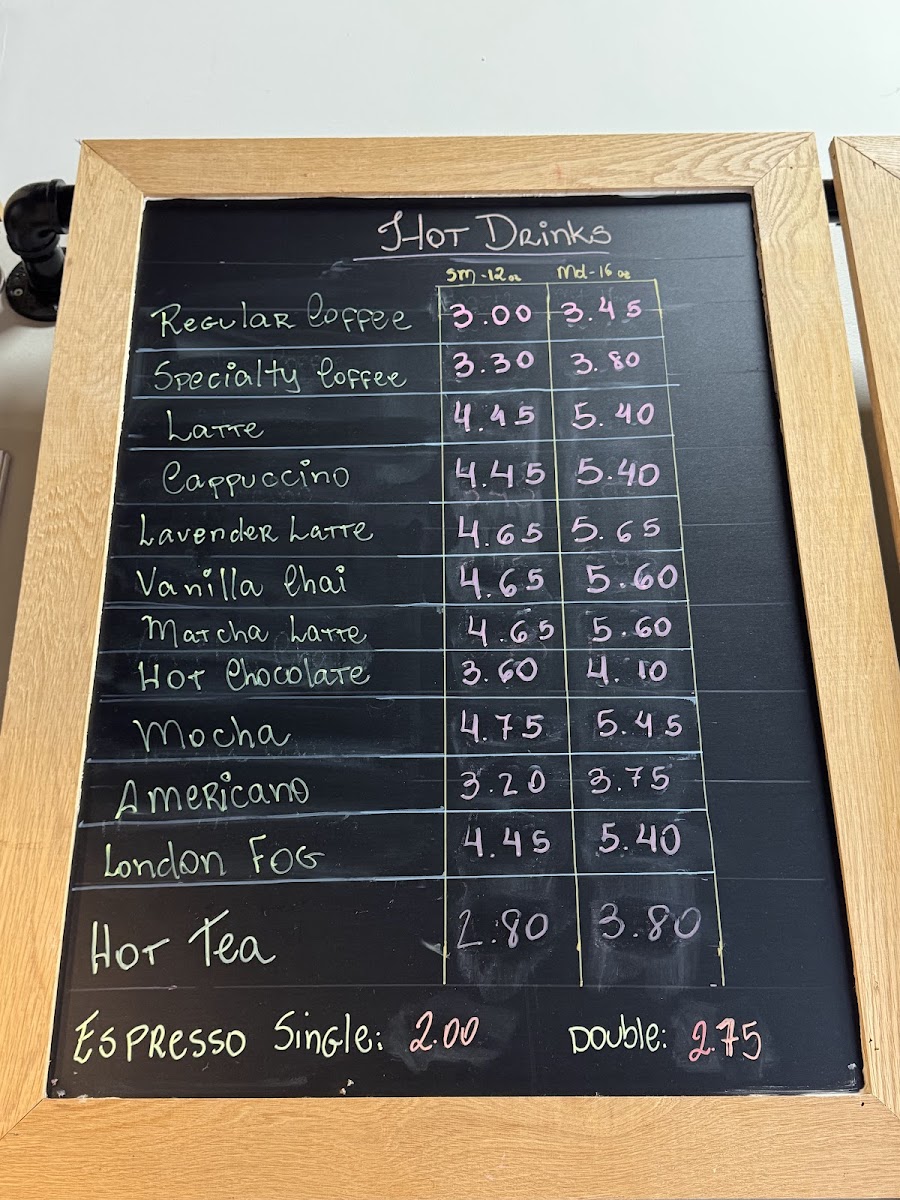 Hot Drinks
Sm-12oz Md-16oz
Regular Coffee 3.00 3.45
Specialty Coffee 3.30 3.80
Latte 4.45 5.40
Cappuccino 4.45 5.40
Lavender Latte 4.65 5.65
Vanilla Chai 4.65 5.60
Matcha Latte 4.65 5.60
Hot Chocolate 3.60 4.10
Mocha 4.75 5.45
Americano 3.20 3.75
London Fog 4.45 5.40
Hot Tea 2.80 3.80
Espresso Single: 2.00 Double: 2.75